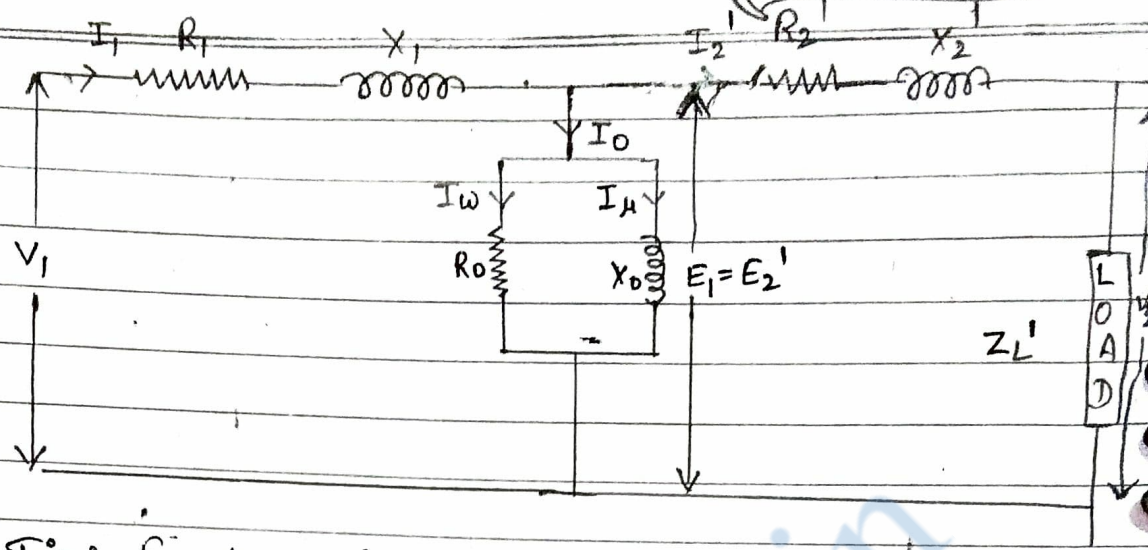 I₁ R₁ X₁ I₂' R₂' X₂
I₀
Iω Iμ
V₁ R₀ X₀ E₁ = E₂'
ZL' LOAD
in